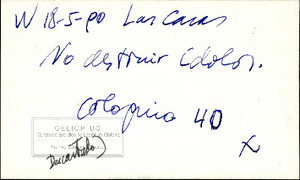 W 18-5-90 Las Casas
No destruir ídolos.
Coloquio 40
CELICH UC
Descartado
X